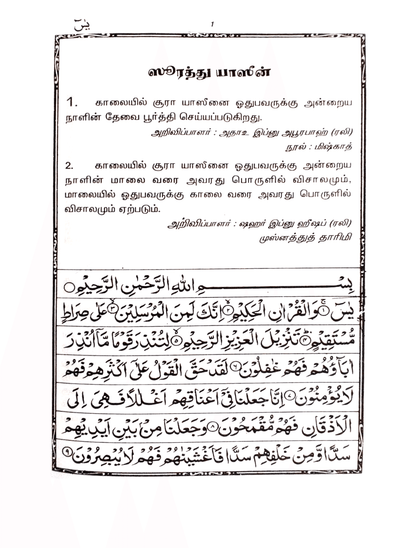 يٰسٓ
1
ஸூரத்து யாஸீன்
1. காலையில் சூரா யாஸீனை ஓதுபவருக்கு அன்றைய
நாளின் தேவை பூர்த்தி செய்யப்படுகிறது.
அறிவிப்பாளர் : அதாஉ இப்னு அபூரபாஹ் (ரலி)
நூல் : மிஷ்காத்
2. காலையில் சூரா யாஸீனை ஓதுபவருக்கு அன்றைய
நாளின் மாலை வரை அவரது பொருளில் விசாலமும்,
மாலையில் ஓதுபவருக்கு காலை வரை அவரது பொருளில்
விசாலமும் ஏற்படும்.
அறிவிப்பாளர் : ஷஹர் இப்னு ஹீஷப் (ரலி)
முஸ்னத்துத் தாரிமி
بِسْمِ اللهِ الرَّحْمٰنِ الرَّحِيْمِ
يٰسٓ ۝١ وَالْقُرْاٰنِ الْحَكِيْمِ ۝٢ اِنَّكَ لَمِنَ الْمُرْسَلِيْنَ ۝٣ عَلٰى صِرَاطٍ
مُّسْتَقِيْمٍ ۝٤ تَنْزِيْلَ الْعَزِيْزِ الرَّحِيْمِ ۝٥ لِتُنْذِرَ قَوْمًا مَّآ اُنْذِرَ
اٰبَآؤُهُمْ فَهُمْ غٰفِلُوْنَ ۝٦ لَقَدْ حَقَّ الْقَوْلُ عَلٰٓى اَكْثَرِهِمْ فَهُمْ
لَا يُؤْمِنُوْنَ ۝٧ اِنَّا جَعَلْنَا فِيْٓ اَعْنَاقِهِمْ اَغْلٰلًا فَهِيَ اِلَى
الْاَذْقَانِ فَهُمْ مُّقْمَحُوْنَ ۝٨ وَجَعَلْنَا مِنْۢ بَيْنِ اَيْدِيْهِمْ
سَدًّا وَّمِنْ خَلْفِهِمْ سَدًّا فَاَغْشَيْنٰهُمْ فَهُمْ لَا يُبْصِرُوْنَ ۝٩